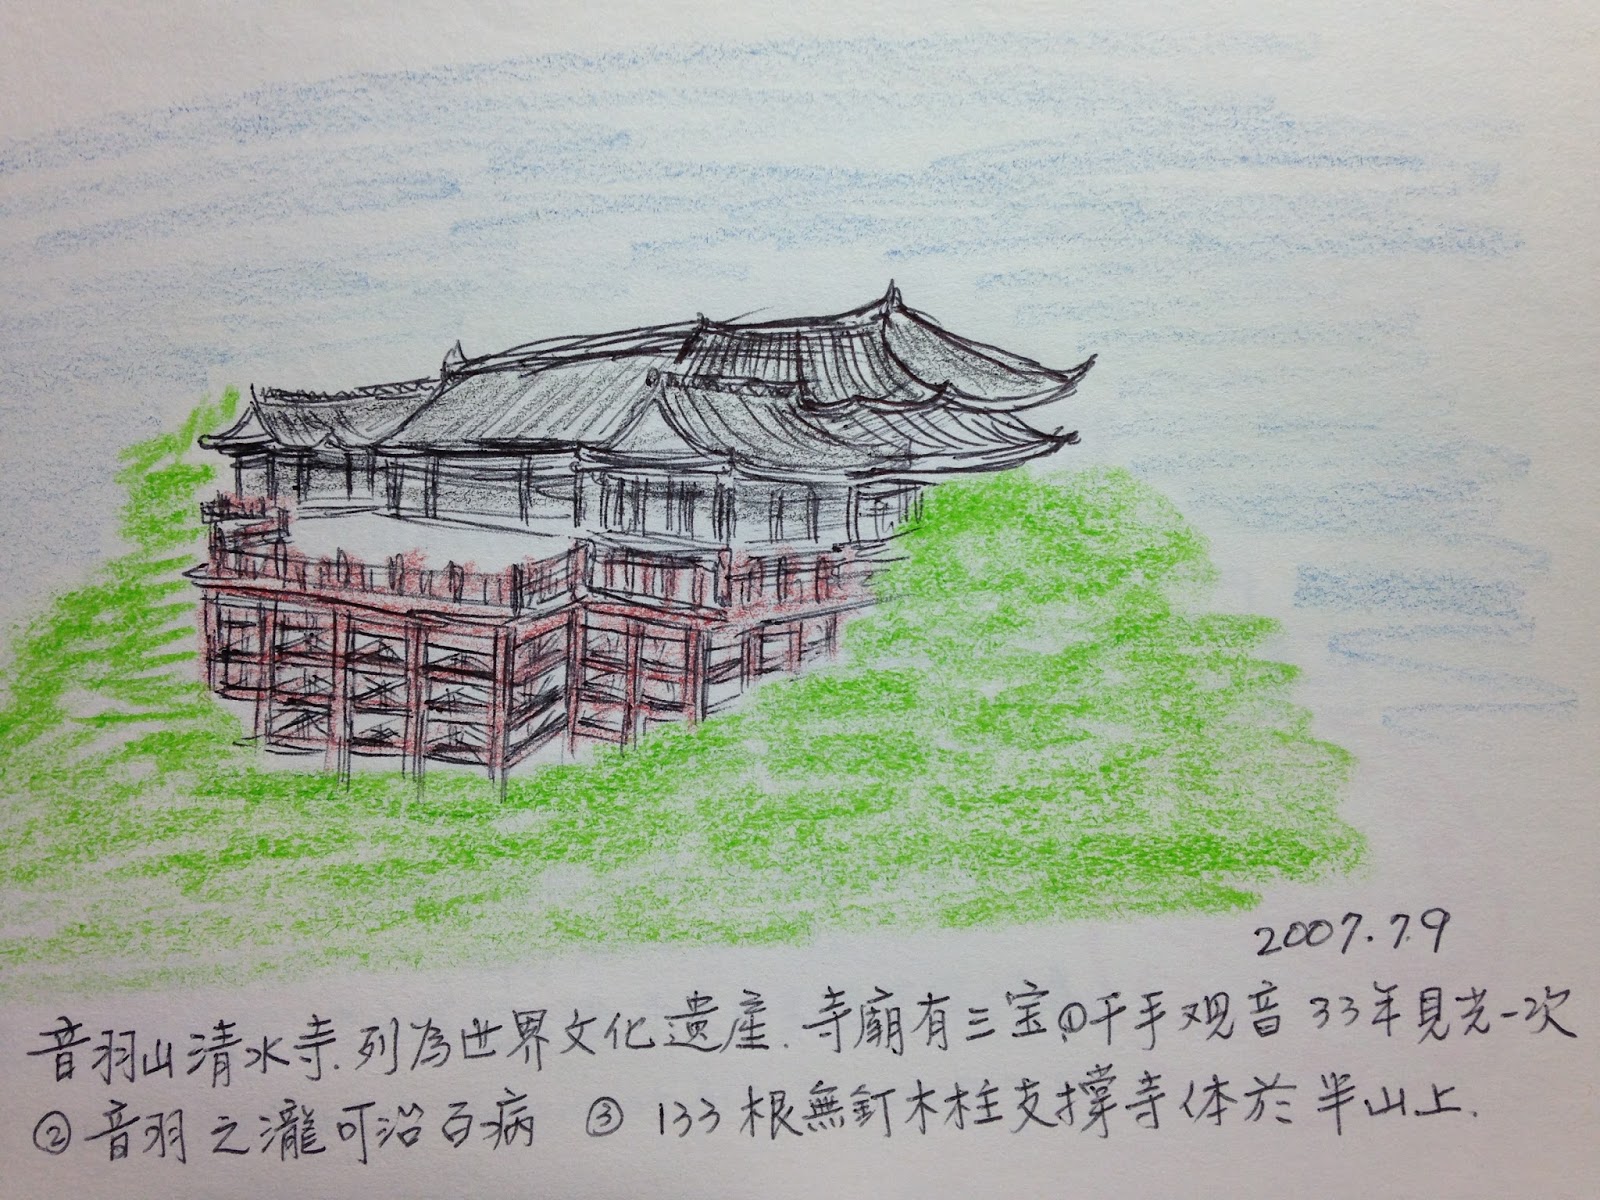 2007.7.9
音羽山清水寺.列為世界文化遺產.寺廟有三宝①千手观音33年見光一次
②音羽之瀧可治百病 ③133根無釘木柱支撐寺体於半山上.